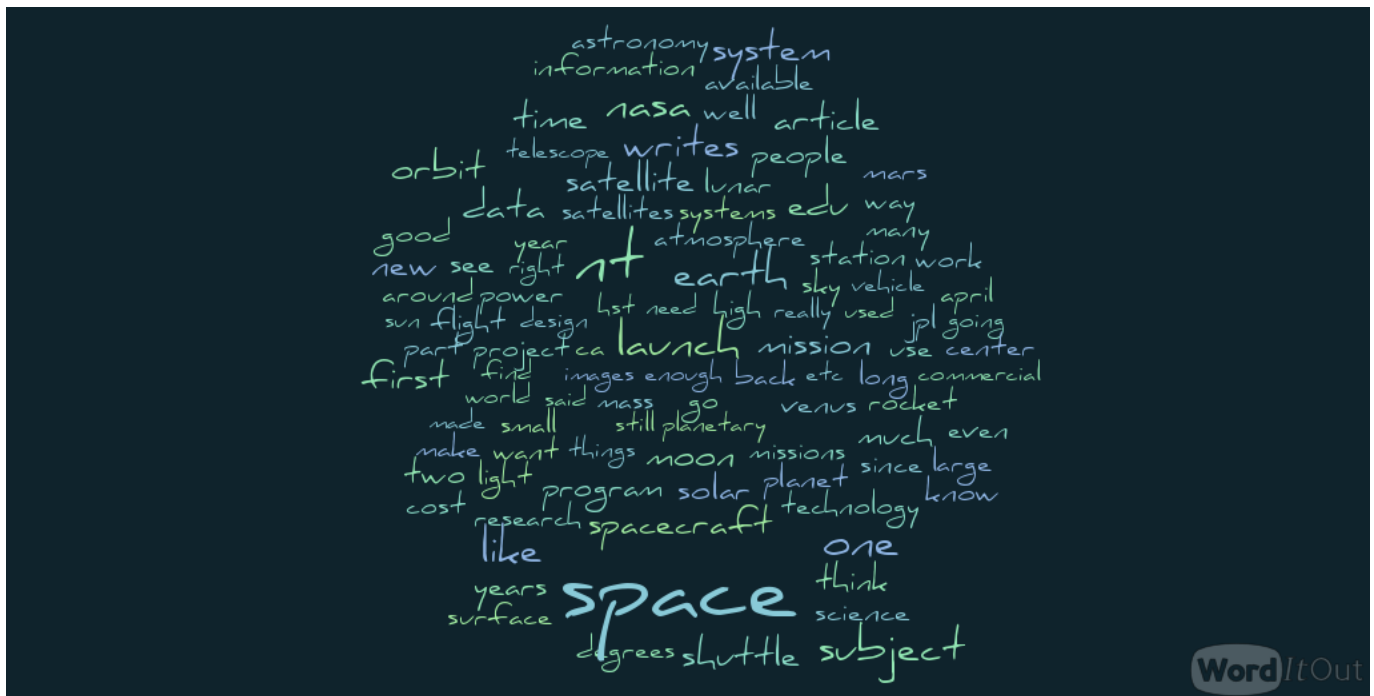 astronomy system
information
available
time nasa well article
telescope writes people
orbit
satellite lunar mars
data satellites systems edu way
good year atmosphere many
new see right nt earth station work
around power sky vehicle april
hst need high really used
sun flight design jpl going
part project ca launch mission use center
first find images enough back etc long commercial
world said mass go venus rocket
made small still planetary
much even
make want things moon missions since large
two light program solar planet know
cost technology
research spacecraft
like one
years space think
surface science
degrees shuttle subject
WordItOut